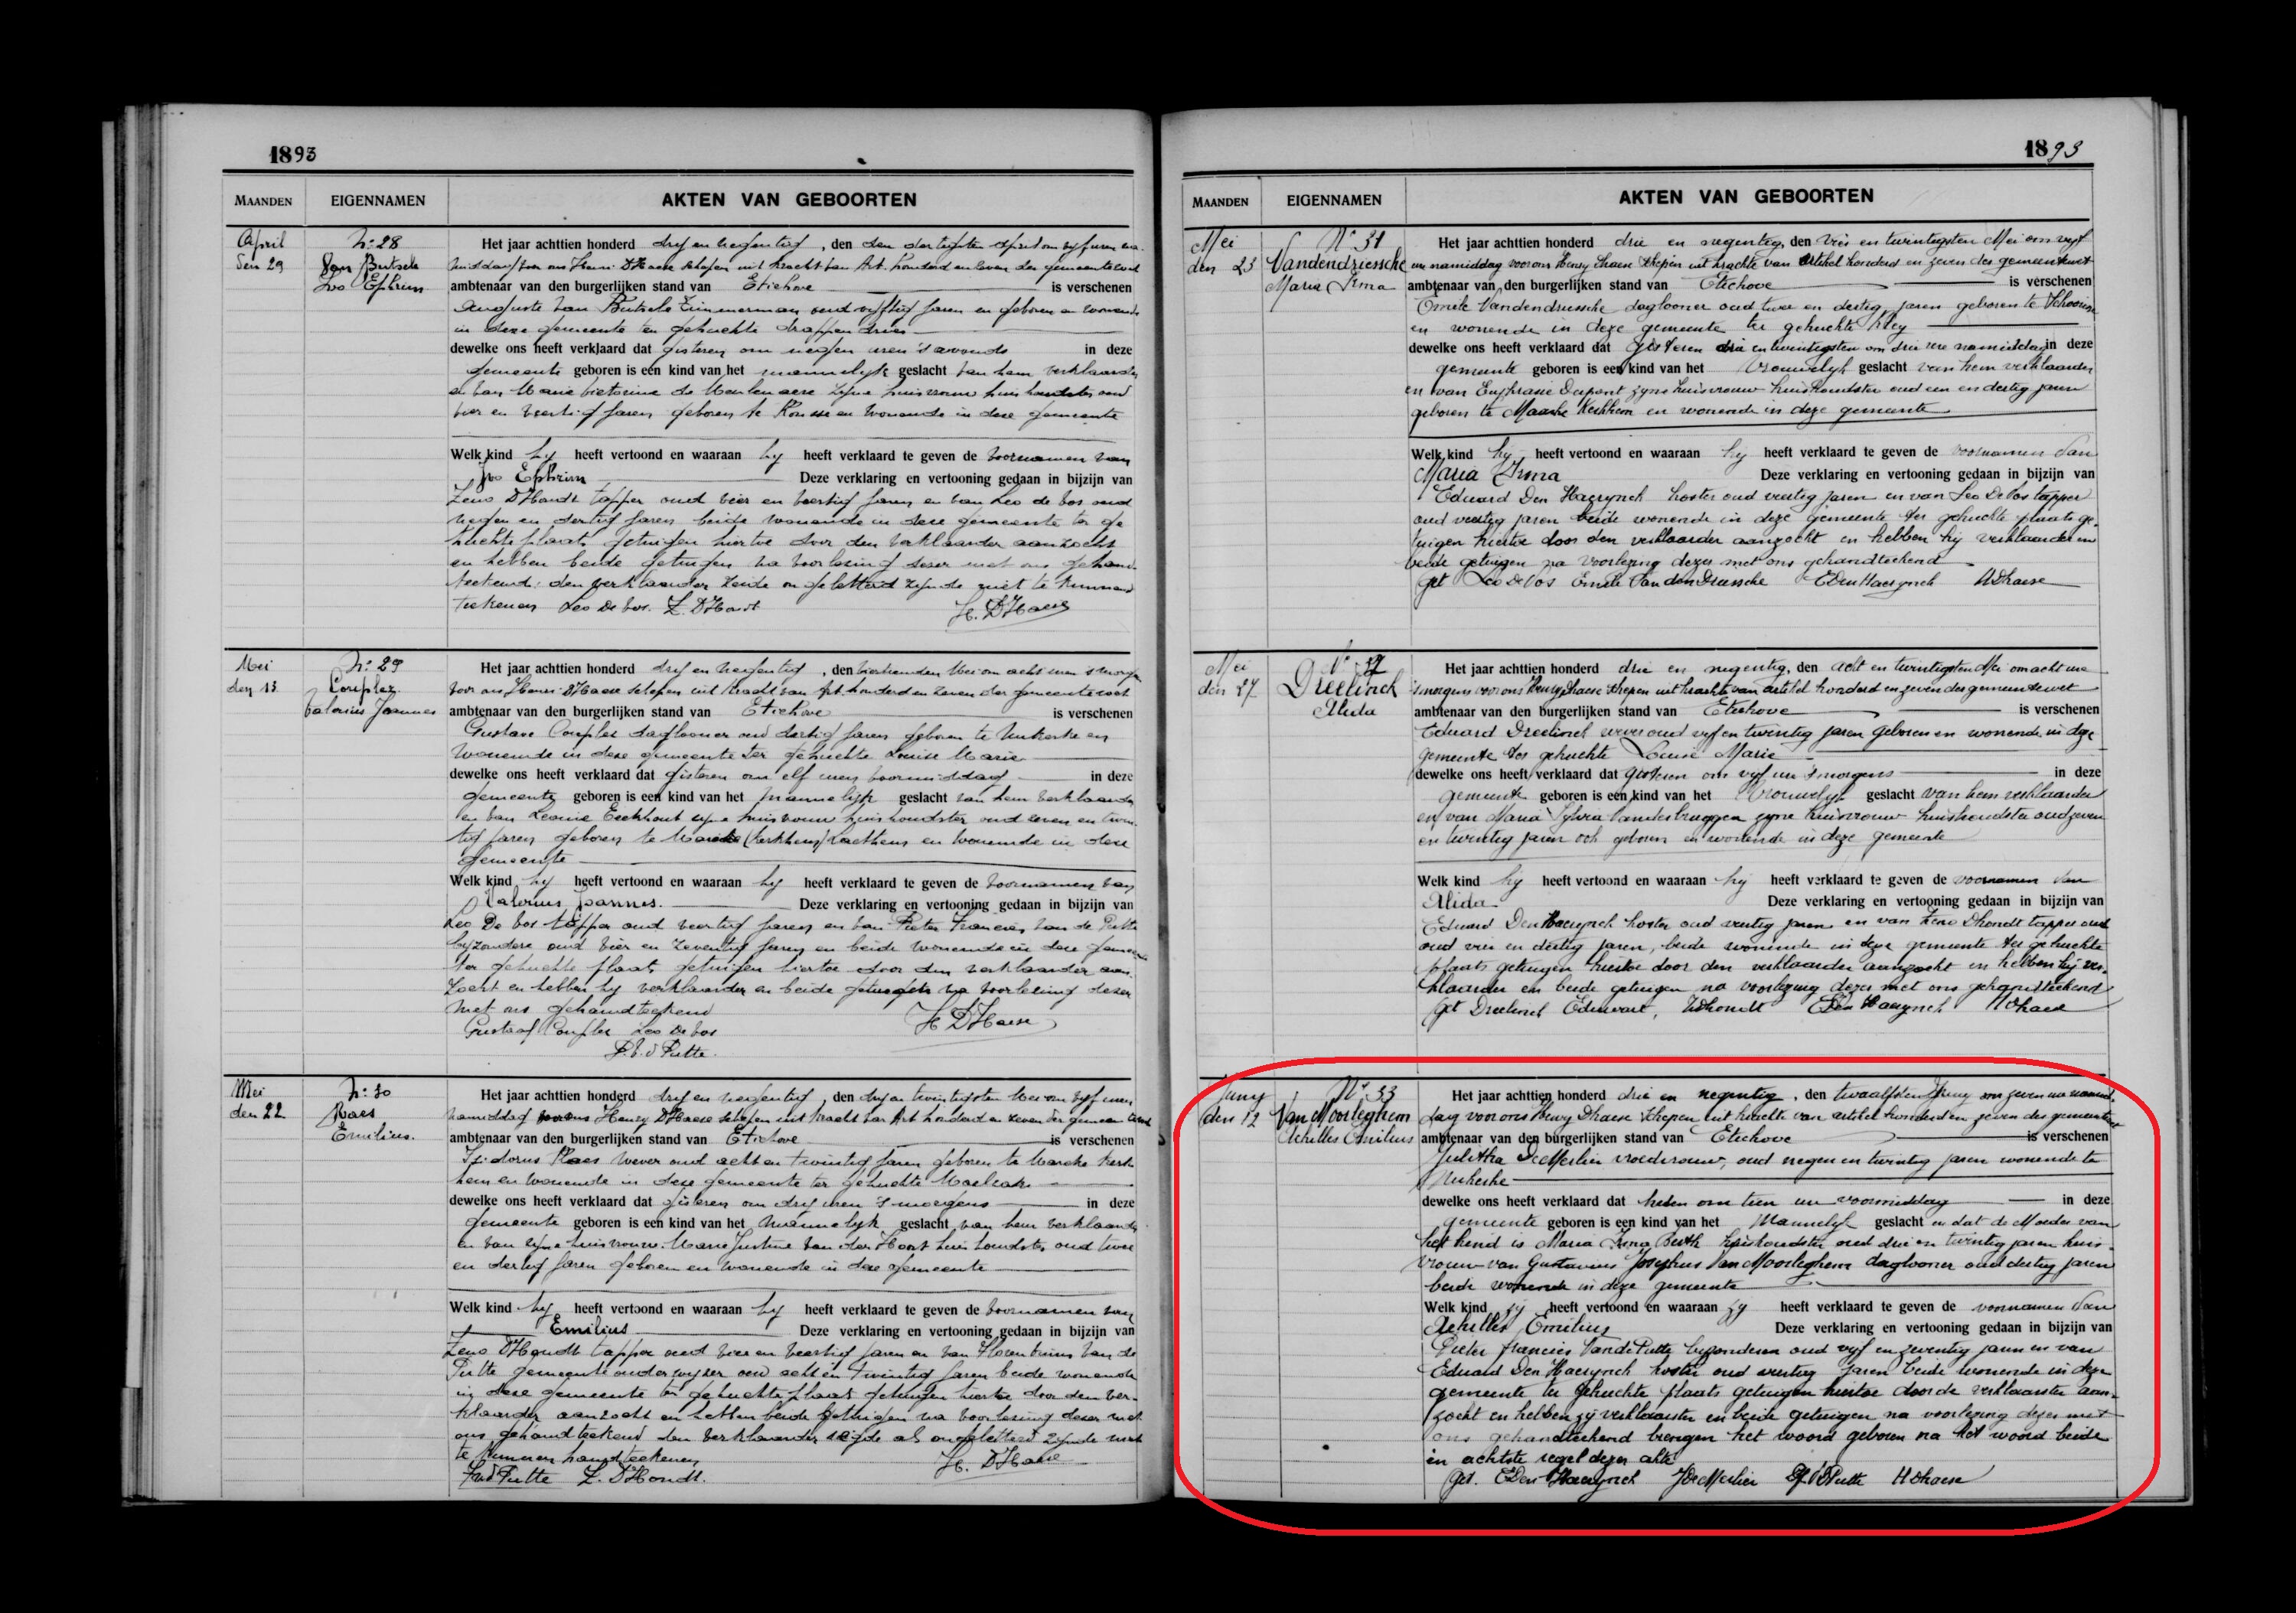 1893
MAANDEN EIGENNAMEN AKTEN VAN GEBOORTEN
April
den 29
N: 28
Van Butsele
Ivo Ephrim
Het jaar achttien honderd dry en negentig, den den dertigsten April om vyf uren na-
middag voor ons Henri D'Haese schepen uit kracht van Art. honderd en zeven der gemeentewet
ambtenaar van den burgerlijken stand van Etichove is verschenen
Auguste van Butsele Timmerman oud vyftig jaren en geboren en wonende
in deze gemeente ten gehuchte drappen dries
dewelke ons heeft verklaard dat gisteren om negen uren 's avonds in deze
gemeente geboren is een kind van het mannelyk geslacht van hem verklaarder
en van Marie Victorine de Meulenaere zyne huisvrouw huishoudster oud
vier en veertig jaren geboren te Ronsse en wonende in deze gemeente
Welk kind hy heeft vertoond en waaraan hy heeft verklaard te geven de voornamen van
Ivo Ephrim Deze verklaring en vertooning gedaan in bijzijn van
Zeno D'Hondt tapper oud vier en veertig jaren en van Leo de Vos oud
negen en dertig jaren beide wonende in deze gemeente ter ge
huchte plaats getuigen hiertoe door den verklaarder aanzocht
en hebben beide getuigen na voorlezing dezer met ons gehand-
teekend: den verklaarder zeide ongeletterd zynde niet te kunnen
teekenen Leo De Vos. Z. D'Hondt H. D'Haese
Mei
den 13
N: 29
Couplez
Valerius Joannes
Het jaar achttien honderd dry en negentig, den veertienden Mei om acht uren 's morgens
voor ons Henri D'Haese schepen uit kracht van Art. honderd en zeven der gemeentewet
ambtenaar van den burgerlijken stand van Etichove is verschenen
Gustave Couplez daglooner oud dertig jaren geboren te Nukerke en
wonende in deze gemeente ter gehuchte Louise Marie
dewelke ons heeft verklaard dat gisteren om elf uren voormiddag in deze
gemeente geboren is een kind van het mannelijk geslacht van hem verklaarder
en van Leonie Eeckhout zyne huisvrouw huishoudster oud zeven en twin-
tig jaren geboren te Maerke (Kerkhem) Laethem en wonende in deze
gemeente
Welk kind hy heeft vertoond en waaraan hy heeft verklaard te geven de voornamen van
Valerius Joannes. Deze verklaring en vertooning gedaan in bijzijn van
Leo De Vos tapper oud veertig jaren en van Pieter Francies van de Putte
byzondere oud vier en zeventig jaren en beide wonende in deze gemeente
ter gehuchte plaats getuigen hiertoe door den verklaarder aan-
zocht en hebben hy verklaarder en beide getuigen na voorlezing dezer
met ons gehandteekend
Gustaaf Couplez Leo De Vos H D'Haese
P.V.d Putte.
Mei
den 22
N: 30
Raes
Emilius.
Het jaar achttien honderd dry en negentig, den dry en twintigsten Mei om vyf uren
namiddag voor ons Henry D'Haese schepen uit kracht van Art honderd en zeven der gemeentewet
ambtenaar van den burgerlijken stand van Etichove is verschenen
Isidorus Raes wever oud acht en twintig jaren geboren te Maercke Kerk-
hem en wonende in deze gemeente ter gehuchte Maelzake
dewelke ons heeft verklaard dat gisteren om dry uren 's morgens in deze
gemeente geboren is een kind van het mannelyk geslacht van hem verklaarder
en van zyne huisvrouw Marie Justine Van der Haegt huishoudster oud twee
en dertig jaren geboren en wonende in deze gemeente
Welk kind hy heeft vertoond en waaraan hy heeft verklaard te geven de voornamen van
Emilius Deze verklaring en vertooning gedaan in bijzijn van
Zeno D'Hondt tapper oud vier en veertig jaren en van Florentinus Van de
Putte gemeente onderwyzer oud acht en twintig jaren beide wonende
in deze gemeente ter gehuchte plaats getuigen hiertoe door den ver-
klaarder aanzocht en hebben beide getuigen na voorlezing dezer met
ons gehandteekend den verklaarder zeide als ongeletterd zynde niet
te kunnen handteekenen
Z. D'Hondt. H. D'Haese
1893
MAANDEN EIGENNAMEN AKTEN VAN GEBOORTEN
Mei
den 23
No 31
Vandendriessche
Maria Irma
Het jaar achttien honderd drie en negentig, den vier en twintigsten Mei om vyf
ure namiddag voor ons Henry Dhaese Schepen uit krachte van Artikel honderd en zeven des gemeentewet
ambtenaar van den burgerlijken stand van Etichove is verschenen
Omile Vandendriessche daglooner oud twee en dertig jaren geboren te Schoorisse
en wonende in deze gemeente ter gehuchte
dewelke ons heeft verklaard dat gisteren drie en twintigsten om drie ure namiddag in deze
gemeente geboren is een kind van het Vrouwelyk geslacht van hem verklaarder
en van Euphrasie Dupont zyne huisvrouw huishoudster oud een en dertig jaren
geboren te Maarke Kerkhem en wonende in deze gemeente
Welk kind hy heeft vertoond en waaraan hy heeft verklaard te geven de voornamen van
Maria Irma Deze verklaring en vertooning gedaan in bijzijn van
Eduard Den Haerynck koster oud veertig jaren en van Leo De Vos tapper
oud veertig jaren beide wonende in deze gemeente ter gehuchte plaats ge-
tuigen hiertoe door den verklaarder aanzocht en hebben hy verklaarder en
beide getuigen na voorlezing dezer met ons gehandteekend
get Leo De Vos Emile Van den Driessche E Den Haerynck H Dhaese
Mei
den 27
No 32
Dreelinck
Alida
Het jaar achttien honderd drie en negentig, den acht en twintigsten Mei om acht ure
's morgens voor ons Henry Dhaese schepen uit krachte van artikel honderd en zeven des gemeentewet
ambtenaar van den burgerlijken stand van Etichove is verschenen
Eduard Dreelinck wever oud vyf en twintig jaren geboren en wonende in deze
gemeente ter gehuchte Louise Marie
dewelke ons heeft verklaard dat gisteren om vyf ure 's morgens in deze
gemeente geboren is een kind van het Vrouwelyk geslacht van hem verklaarder
en van Maria Sylvia Vanderbruggen zyne huisvrouw huishoudster oud zeven
en twintig jaren ook geboren en wonende in deze gemeente
Welk kind hij heeft vertoond en waaraan hij heeft verklaard te geven de voornamen van
Alida Deze verklaring en vertooning gedaan in bijzijn van
Eduard Den Haerynck koster oud veertig jaren en van Zeno Dhondt tapper oud
oud vier en dertig jaren, beide wonende in deze gemeente ter gehuchte
plaats getuigen hiertoe door den verklaarder aanzocht en hebben hij ver-
klaarder en beide getuigen na voorlezing dezer met ons gehandteekend
get Dreelinck Eduard, ZDhondt E Den Haerynck HDhaese
Juny
den 12
No 33
Van Moorleghem
Achilles Emilius
Het jaar achttien honderd drie en negentig, den twaalfsten Juny om zeven ure namid-
dag voor ons Henry Dhaese Schepen uit krachte van artikel honderd en zeven des gemeentewet
ambtenaar van den burgerlijken stand van Etichove is verschenen
Julitha De Merlier vroedvrouw, oud negen en twintig jaren wonende te
Nukerke
dewelke ons heeft verklaard dat heden om tien ure voormiddag in deze
gemeente geboren is een kind van het Mannelyk geslacht en dat de Moeder van
het kind is Maria Irma Buth huishoudster oud drie en twintig jaren huis-
vrouw van Gustavus Josephus Van Moorleghem daglooner oud dertig jaren
beide wonende in deze gemeente
Welk kind zy heeft vertoond en waaraan zy heeft verklaard te geven de voornamen van
Achilles Emilius Deze verklaring en vertooning gedaan in bijzijn van
Pieter Francies Van de Putte byzonderen oud vyf en zeventig jaren en van
Eduard Den Haerynck koster oud veertig jaren beide wonende in deze
gemeente ter gehuchte plaats getuigen hiertoe door de verklaarster aan-
zocht en hebben zy verklaarster en beide getuigen na voorlezing dezer met
ons gehandteekend brengen het woord geboren na het woord beide
in achtste regel dezer akte
get. E Den Haerynck J De Merlier Pf V d Putte H Dhaese